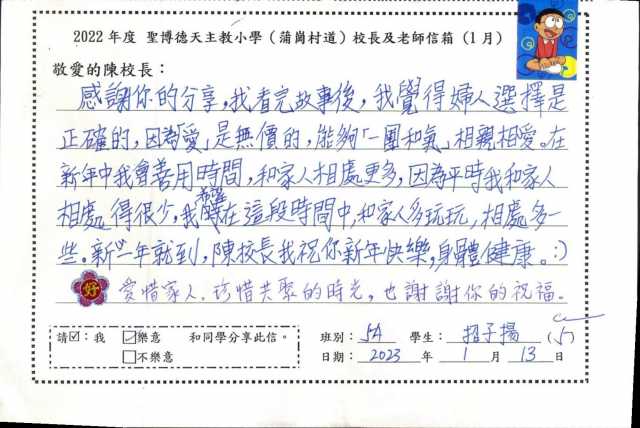 2022 年度 聖博德天主教小學（蒲崗村道）校長及老師信箱（1月）
敬愛的陳校長：
感謝你的分享，我看完故事後，我覺得婦人選擇是
正確的，因為「愛」是無價的，能夠「一團和氣」相親相愛。在
新年中我會善用時間，和家人相處更多，因為平時我和家人
相處得很少，我希望在這段時間中，和家人多玩玩，相處多一
些。新一年就到，陳校長我祝你新年快樂，身體健康。:)
好 愛惜家人，珍惜共聚的時光，也謝謝你的祝福。
請☑：我 ☑樂意 和同學分享此信。 班別：5A 學生：招子揚 (5)
□不樂意 日期：2023 年 1 月 13 日